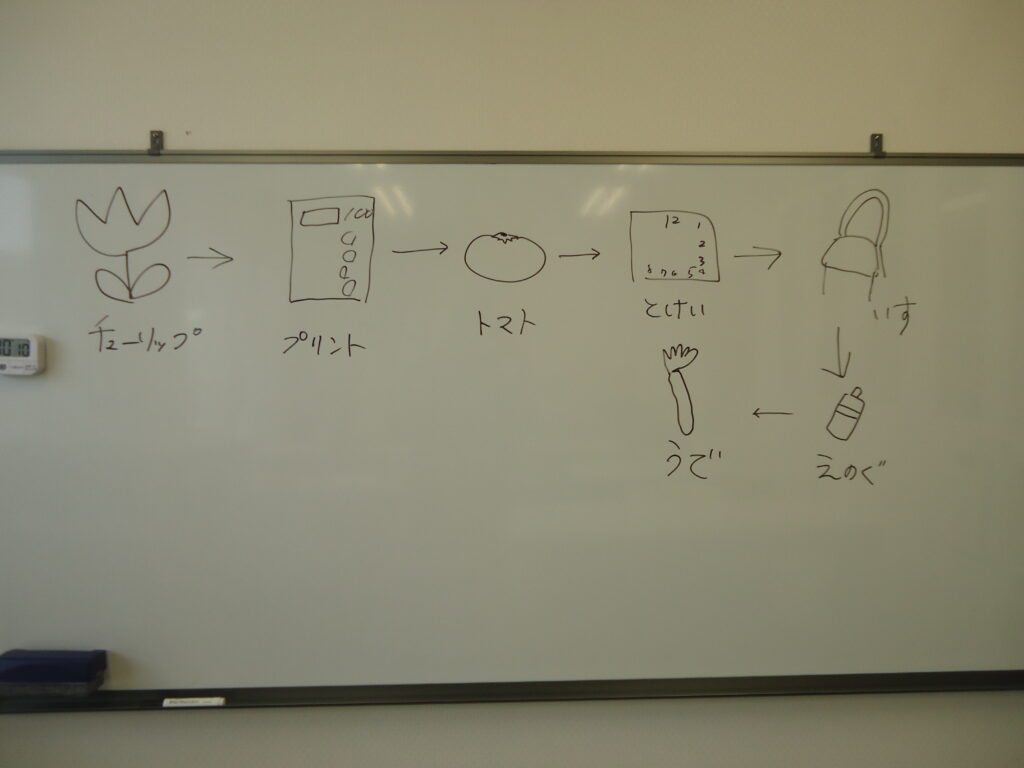 チューリップ
100
プリント
トマト
12 1
2
3
8 7 6 5 4
とけい
いす
えのぐ
うで
10 10